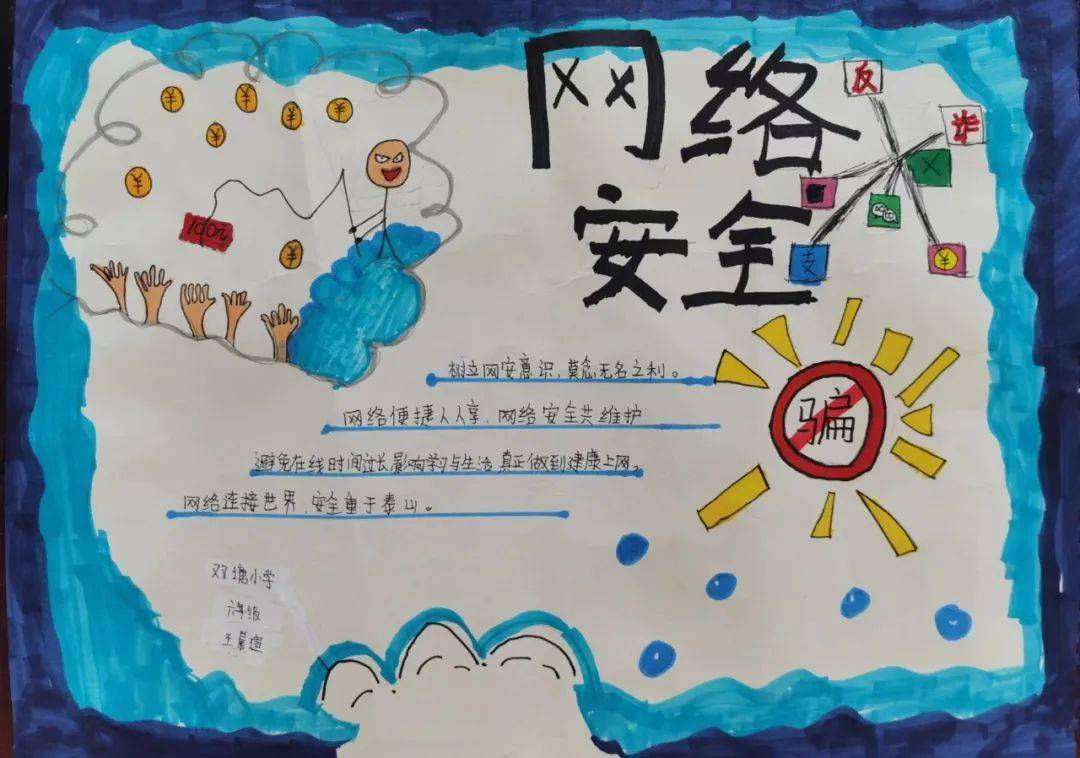 网络
安全
反
诈
X
支
¥
¥
¥
¥
¥
¥
¥
¥
树立网安意识,莫念无名之利。
网络便捷人人享,网络安全共维护
避免在线时间过长影响学习与生活,真正做到健康上网。
网络连接世界,安全重于泰山。
骗
双塘小学
六年级